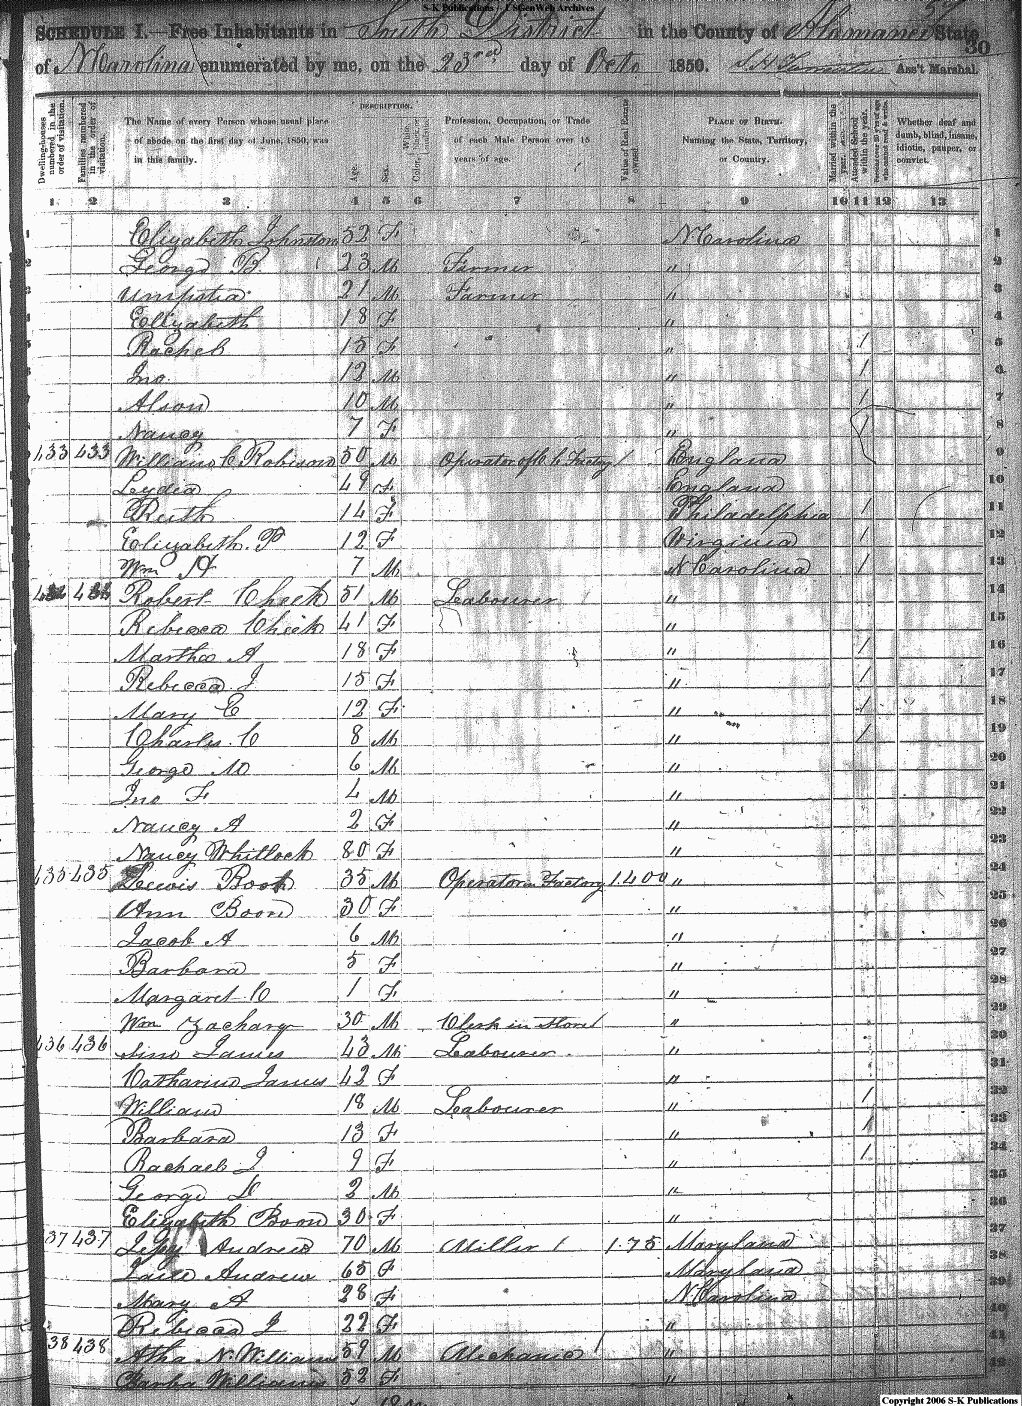 S-K Publications - USGenWeb Archives
SCHEDULE I.—Free Inhabitants in South District in the County of Alamance State
30
of N Carolina enumerated by me, on the 23rd day of Octo 1850. Ass't Marshal.
Dwelling-houses numbered in the order of visitation.
Families numbered in the order of visitation.
The Name of every Person whose usual place of abode on the first day of June, 1850, was in this family.
DESCRIPTION.
Age.
Sex.
Color,
Profession, Occupation, or Trade of each Male Person over 15 years of age.
Value of Real Estate owned.
PLACE OF BIRTH. Naming the State, Territory, or Country.
Married within the year.
Attended School within the year.
Persons over 20 y'rs of age who cannot read & write.
Whether deaf and dumb, blind, insane, idiotic, pauper, or convict.
1 2 3 4 5 6 7 8 9 10 11 12 13
1 Elizabeth Johnston 52 F N Carolina 1
2 George B 23 M Farmer " 2
3 21 M Farmer " 3
4 Ellizabeth 18 F " 4
5 Rachel 15 F " 1 5
Jno. 12 M " 1 6
7 Alson 10 M " 1 7
8 Nancy 7 F " 1 8
433 433 William C Robison 50 M Operator of Factory England 9
Lydia 49 F England 10
Ruth 14 F Philadelphia 1 11
Elizabeth. P 12 F Virginia 1 12
Wm H 7 M N Carolina 1 13
434 434 Robert Cheek 51 M Labourer " 14
Rebecca Cheek 41 F " 15
Martha A 18 F " 1 16
Rebecca J 15 F " 1 17
Mary C 12 F " 1 18
Charles. C 8 M " 1 19
George M 6 M " 20
Jno F 4 M " 21
Nancy A 2 F " 22
Nancy Whitlock 80 F " 23
435 435 Lewis Boon 35 M Operator in Factory 1.400 " 24
Ann Boon 30 F " 25
Jacob A 6 M " 26
Barbara 5 F " 27
Margaret C 1 F " 28
Wm Zachary 30 M Clerk in Store " 29
436 436 James 43 M Labourer " 30
Catharine James 42 F "
William 18 M Labourer " 1 32
Barbara 13 F " 1 33
Rachael J 9 F " 1 34
George D 2 M " 35
Elizabeth Boon 30 F " 36
37 437 Andrew 70 M Miller 1.75 Maryland 37
Andrew 65 F Maryland 38
Mary A 28 F N Carolina 39
Rebecca J 22 F " 40
38 438 N. Williams 59 M Mechanic " 41
Williams 52 F " 42
Copyright 2006 S-K Publications